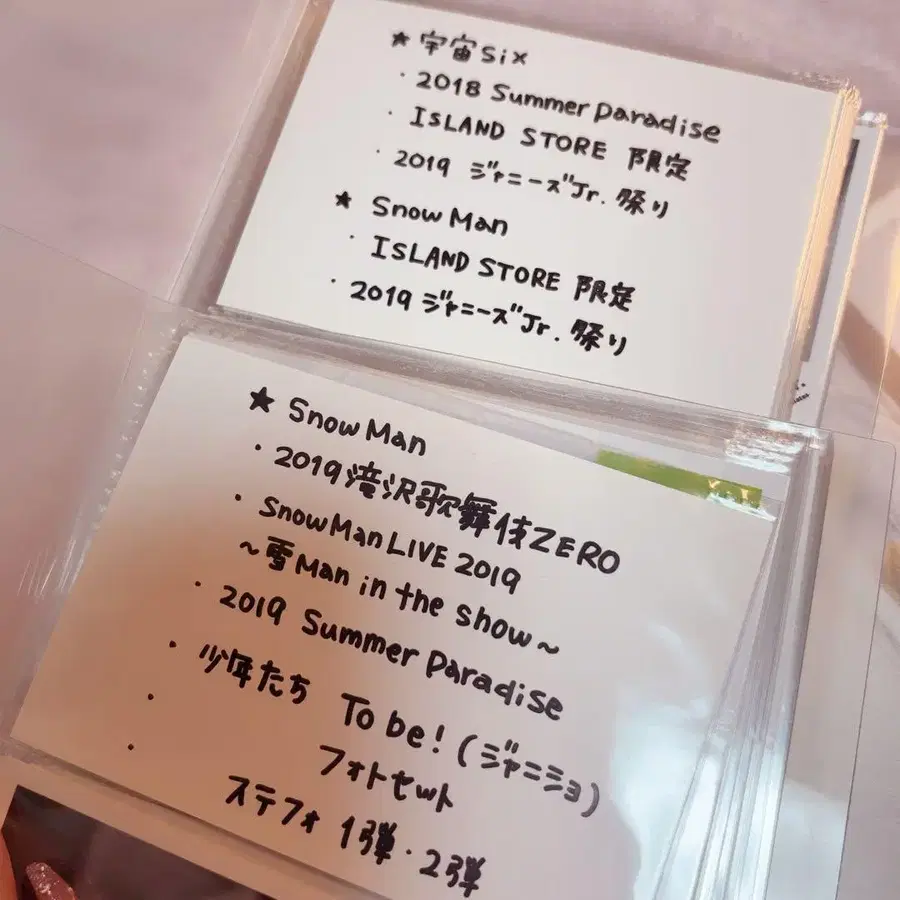 ★ 宇宙Six
・2018 Summer Paradise
・ISLAND STORE 限定
・2019 ジャニーズJr. 祭り
★ Snow Man
・ISLAND STORE 限定
・2019 ジャニーズJr. 祭り
★ Snow Man
・2019 滝沢歌舞伎ZERO
・Snow Man LIVE 2019
～雪Man in the show～
・2019 Summer Paradise
・少年たち To be! (ジャニショ)
・フォトセット
・ステフォ 1弾・2弾